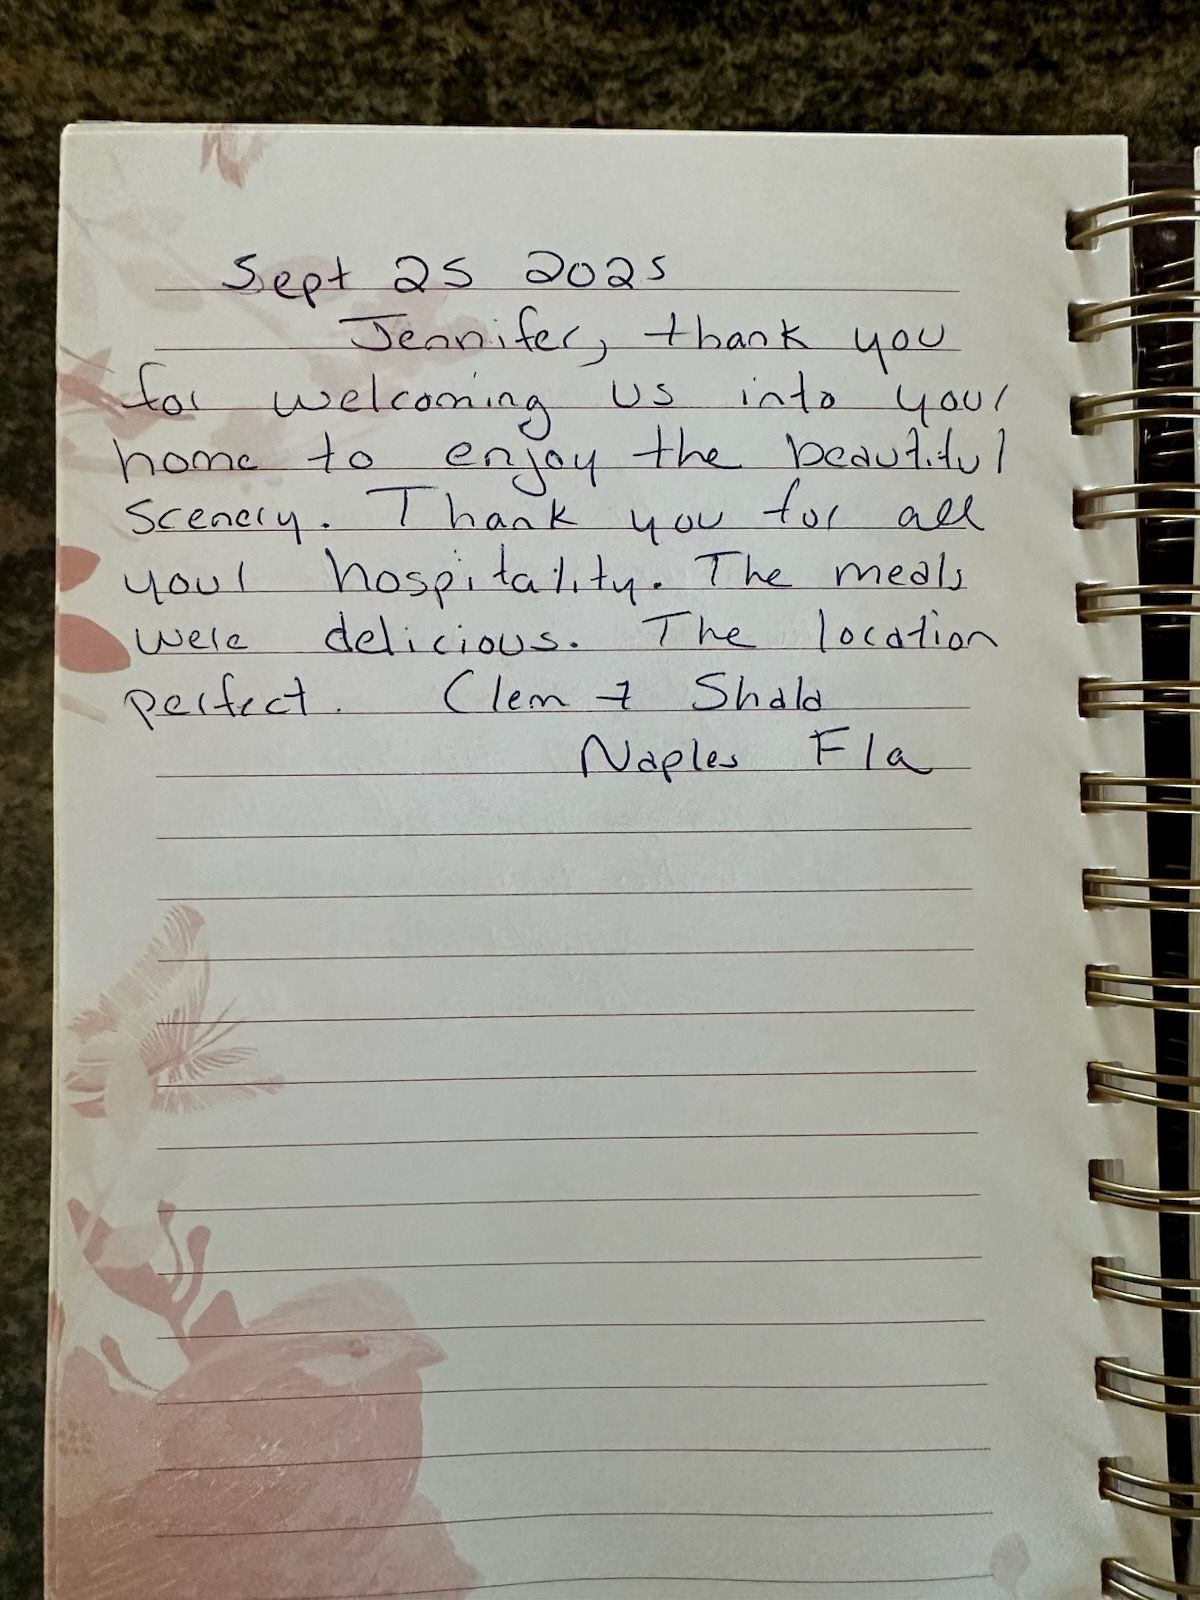 Sept 25 2025
Jennifer, thank you
for welcoming us into your
home to enjoy the beautiful
scenery. Thank you for all
your hospitality. The meals
were delicious. The location
perfect. Clem +
Naples Fla